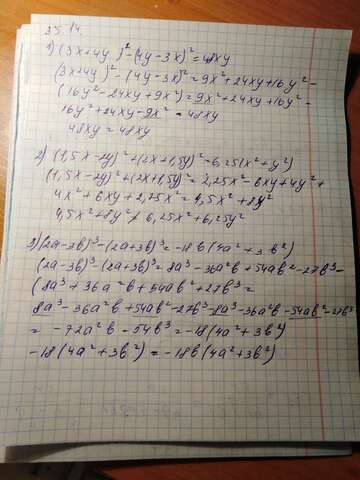 35.14.
1) (3x+4y)²-(4y-3x)²=48xy
(3x+4y)²-(4y-3x)²=9x²+24xy+16y²-
(16y²-24xy+9x²)=9x²+24xy+16y²-
16y²+24xy-9x²=48xy
48xy=48xy
2) (1,5x-2y)²+(2x+1,5y)²=6,25(x²+y²)
(1,5x-2y)²+(2x+1,5y)²=2,25x²-6xy+4y²+
4x²+6xy+2,25x²=4,5x²+8y²
4,5x²+8y²≠6,25x²+6,25y²
3) (2a-3b)³-(2a+3b)³=-18b(4a²+3b²)
(2a-3b)³-(2a+3b)³=8a³-36a²b+54ab²-27b³-
(8a³+36a²b+54ab²+27b³=
8a³-36a²b+54ab²-27b³-8a³-36a²b-54ab²-27b³
= -72a²b-54b³=-18(4a²+3b²)
-18(4a²+3b²)=-18b(4a²+3b²)